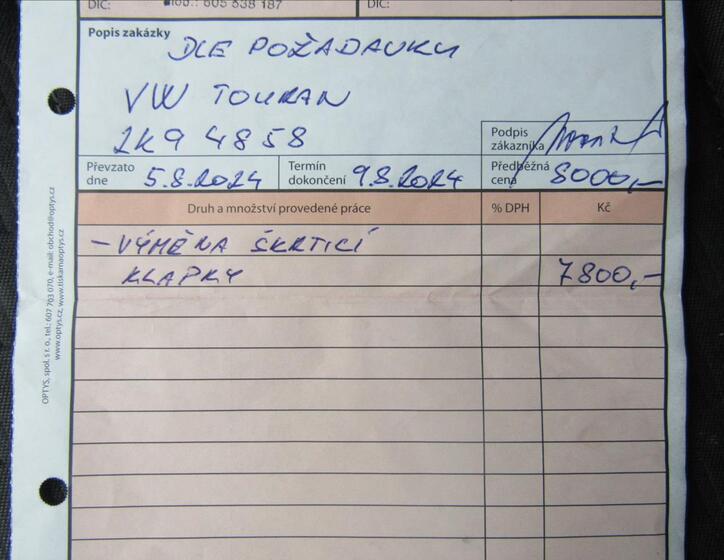 DIČ:
Mob.: 605 538 187
DIČ:
Popis zakázky
DLE POŽADAVKU
VW TOURAN
2K9 4858
Podpis
zákazníka
Převzato
dne
5.8.2024
Termín
dokončení
9.8.2024
Předběžná
cena
8000,-
Druh a množství provedené práce
% DPH
Kč
- VÝMĚNA ŠKRTICÍ
KLAPKY
7800,-
OPTYS, spol. s r. o., tel.: 607 703 070, e-mail: obchod@optys.cz
www.optys.cz, www.tiskarnaoptys.cz